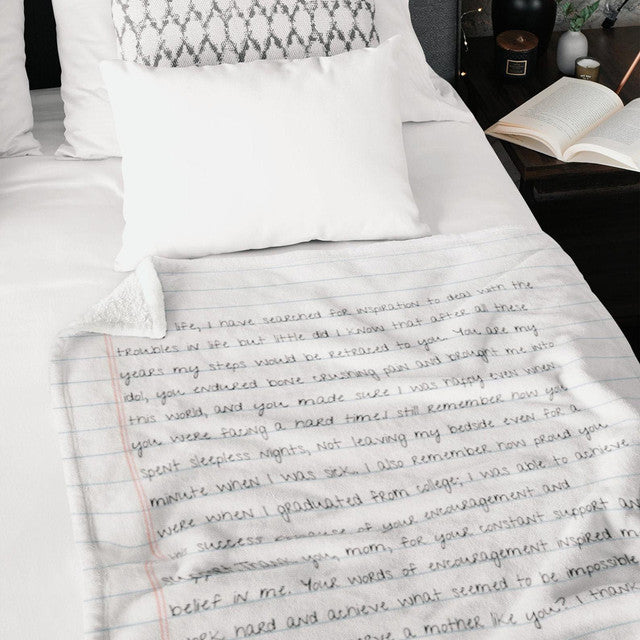 life, I have searched for inspiration to deal with the
troubles in life but little did I know that after all those
years my steps would be retraced to you. You are my
idol, you endured bone crushing pain and brought me into
this world, and you made sure I was happy even when
you were facing a hard time! I still remember how you
spent sleepless nights, not leaving my bedside even for a
minute when I was sick. I also remember how proud you
were when I graduated from college; I was able to achieve
success of your encouragement and
you, mom, for your constant support and
belief in me. Your words of encouragement inspired m
work hard and achieve what seemed to be impossible
a mother like you? I thank